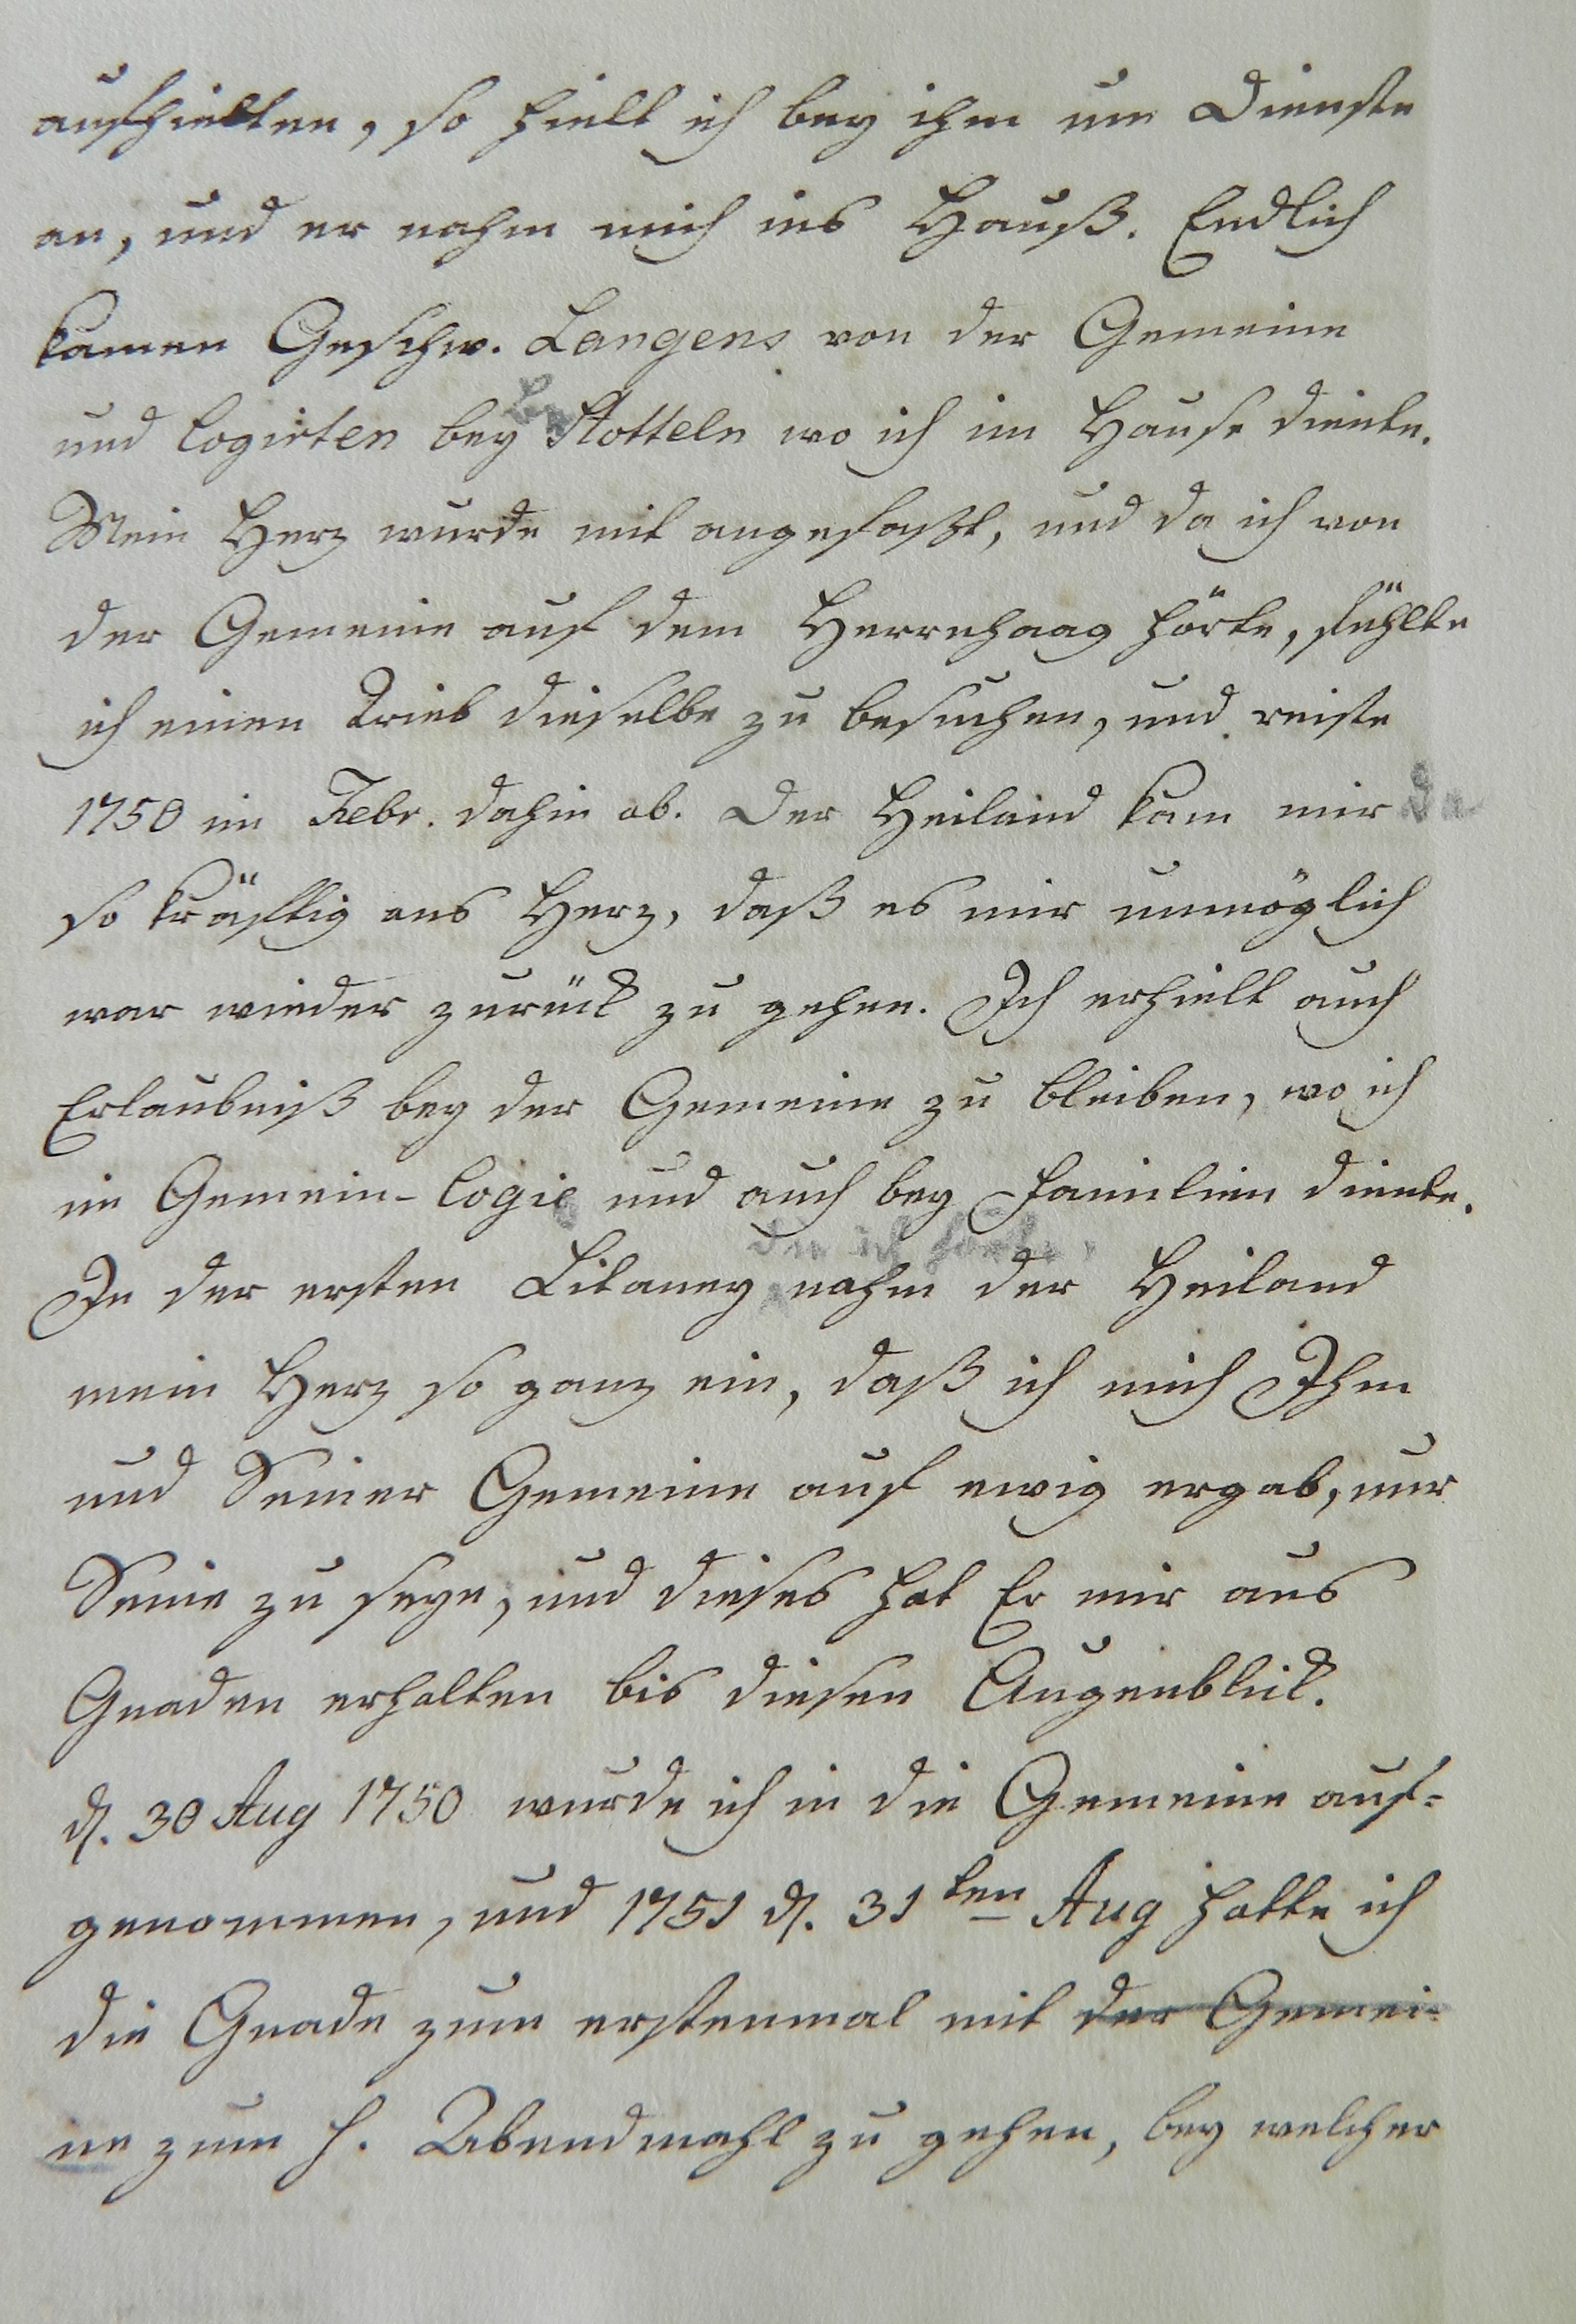 aufhielten, so hielt ich bey ihm um Dienste
an, und er nahm mich ins Hauß. Endlich
kamen Geschw. Langens von der Gemeine
und logirten bey Br Stotteln wo ich im Hause diente.
Mein Herz wurde mit angefaßt, und da ich von
der Gemeine auf dem Herrnhaag hörte, fühlte
ich einen Trieb dieselbe zu besuchen, und reiste
1750 im Febr. dahin ab. Der Heiland kam mir da
so kräftig ans Herz, daß es mir unmöglich
war wieder zurück zu gehen. Ich erhielt auch
Erlaubniß bey der Gemeine zu bleiben, wo ich
im Gemein-Logie und auch bey Familien diente.
die ich hörte,
In der ersten Litaney nahm der Heiland
mein Herz so ganz ein, daß ich mich Ihm
und Seiner Gemeine auf ewig ergab, nur
Seine zu seyn, und dieses hat Er mir aus
Gnaden erhalten bis diesen Augenblick.
d. 30 Aug 1750 wurde ich in die Gemeine auf-
genommen, und 1751 d. 31ten Aug hatte ich
die Gnade zum erstenmal mit der Gemei-
ne zum h. Abendmahl zu gehen, bey welcher